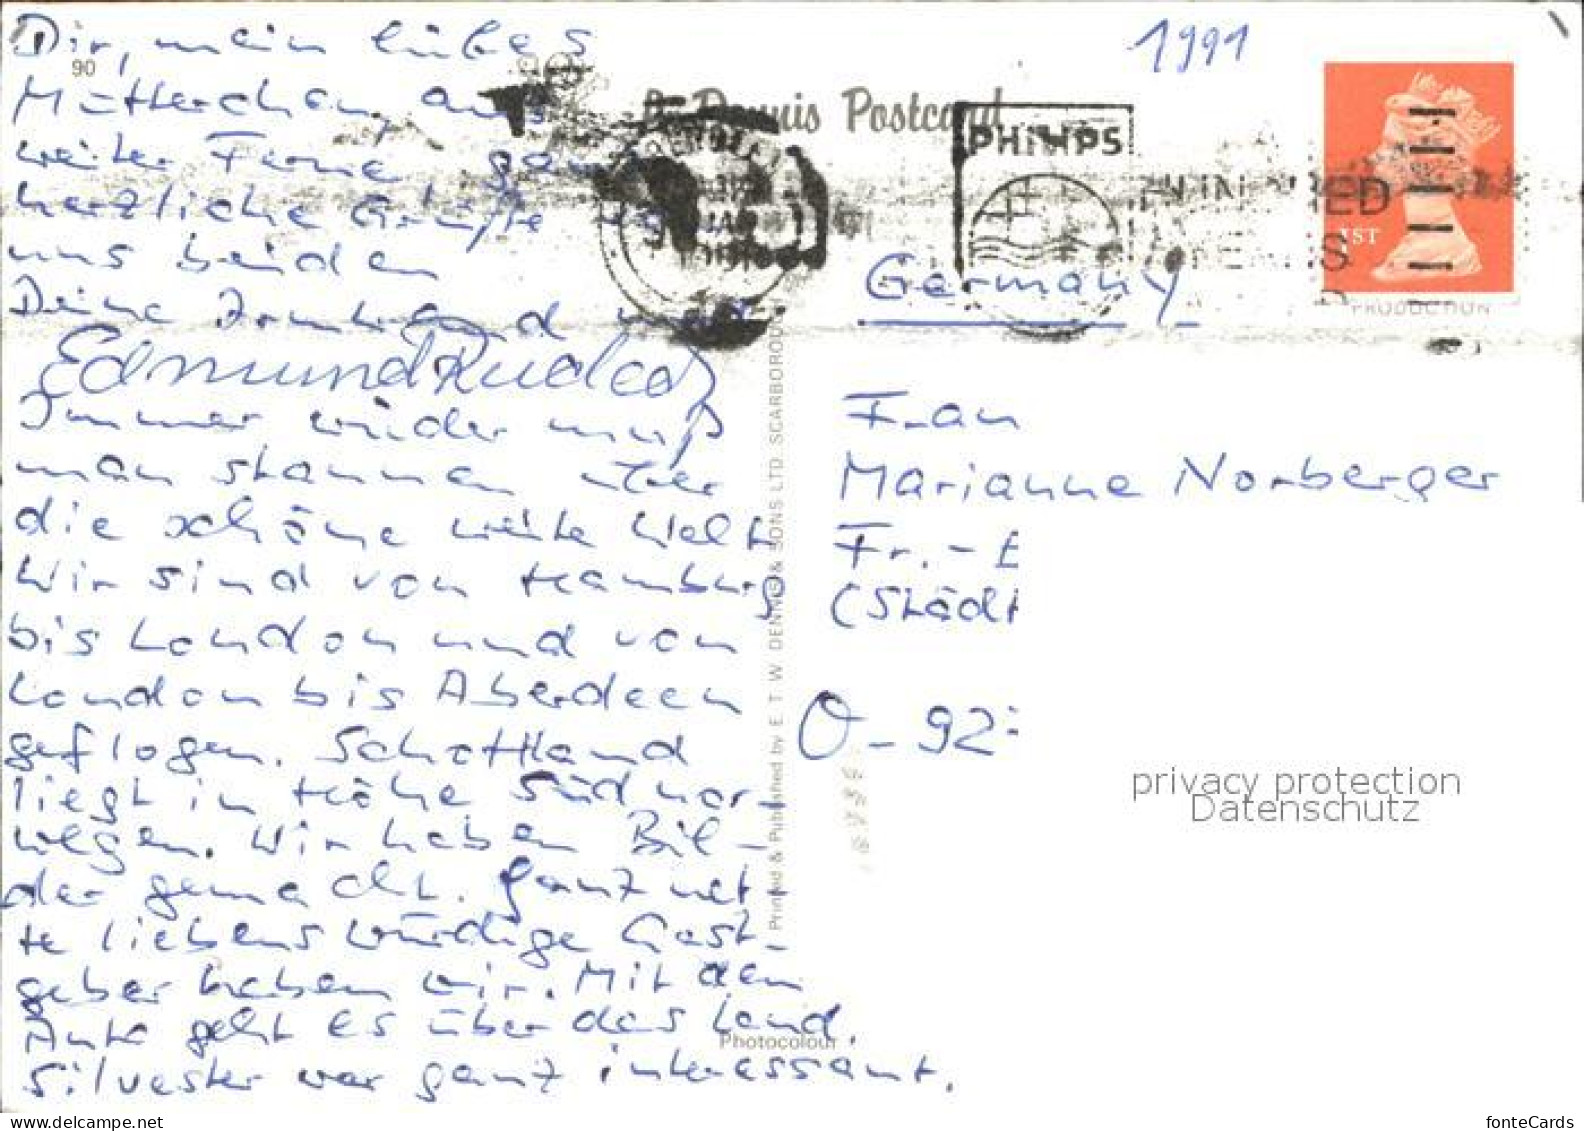 Dir, mein liebes
90
Mütterchen, aus
weiter Ferne, ganz
herzliche Grüße von
uns beiden
Deine Irmtraud und
Edmund Rudloff
Immer wieder muß
man staunen über
die schöne weite Welt
Wir sind von Hamburg
bis London und von
London bis Aberdeen
geflogen. Schottland
liegt in Höhe Südnor-
wegen. Wir haben Bil-
der gemacht. Ganz net-
te liebenswürdige Gast-
geber haben wir. Mit dem
Auto geht es über das Land.
Silvester war ganz interessant.
1991
Dennis Postcard
PHILIPS
1ST
PRODUCTION
Germany
Frau
Marianne Norberger
Fr.-E
(Städt
O-92
Printed & Published by E. T. W. DENNIS & SONS LTD. SCARBOROUGH
Photocolour
privacy protection
Datenschutz
www.delcampe.net
fonteCards